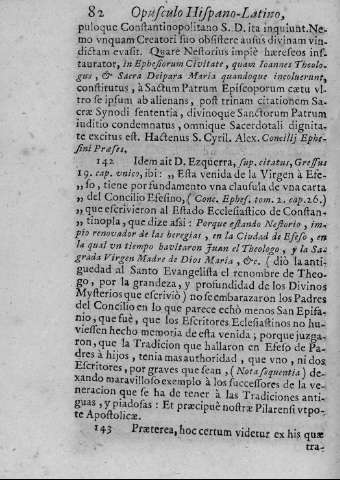 82 Opusculo Hispano-Latino,
puloque Constantinopolitano S. D. ita inquiunt. Ne-
mo vnquam Creatori suo obsistere ausus divinam vin-
dictam evasit. Quare Nestorius impiè hæreseos inf-
taurator, in Ephesorum Civitate, quam Ioannes Theolo-
gus, & Sacra Deipara Maria quandoque incoluerunt,
constitutus, à Sactum Patrum Episcoporum cætu vl-
tro se ipsum ab alienans, post trinam citationem Sa-
cræ Synodi sententia, divinoque Sanctorum Patrum
iuditio condemnatus, omnique Sacerdotali dignita-
te excitus est. Hactenus S. Cyril. Alex. Concilij Ephe-
sini Præses.
142 Idem ait D. Ezquerra, sup. citatus, Gressus
19. cap. vnico, ibi: „ Esta venida de la Virgen à Efe-
„ so, tiene por fundamento vna clausula de vna carta
„ del Concilio Efesino, (Conc. Ephes. tom. 2. cap. 26.)
„ que escrivieron al Estado Eclesiastico de Constan-
„ tinopla, que dize assi: Porque estando Nestorio, im-
pio renovador de las heregias, en la Ciudad de Efeso, en
la qual vn tiempo havitaron Juan el Theologo, y la Sa-
grada Virgen Madre de Dios Maria, &c. (diò la anti-
guedad al Santo Evangelista el renombre de Theo-
go, por la grandeza, y profundidad de los Divinos
Mysterios que escriviò) no se embarazaron los Padres
del Concilio en lo que parece echò menos San Epifa-
nio, que fuè, que los Escritores Eclesiastinos no hu-
viessen hecho memoria de esta venida; porque juzga-
ron, que la Tradicion que hallaron en Efeso de Pa-
dres à hijos, tenia mas authoridad, que vno, ni dos
Escritores, por graves que sean, (Nota sequentia) de-
xando maravilloso exemplo à los successores de la ve-
neracion que se ha de tener à las Tradiciones anti-
guas, y piadosas: Et præcipuè nostræ Pilarensi vtpo-
te Apostolicæ.
143 Præterea, hoc certum videtur ex his quæ
tra-